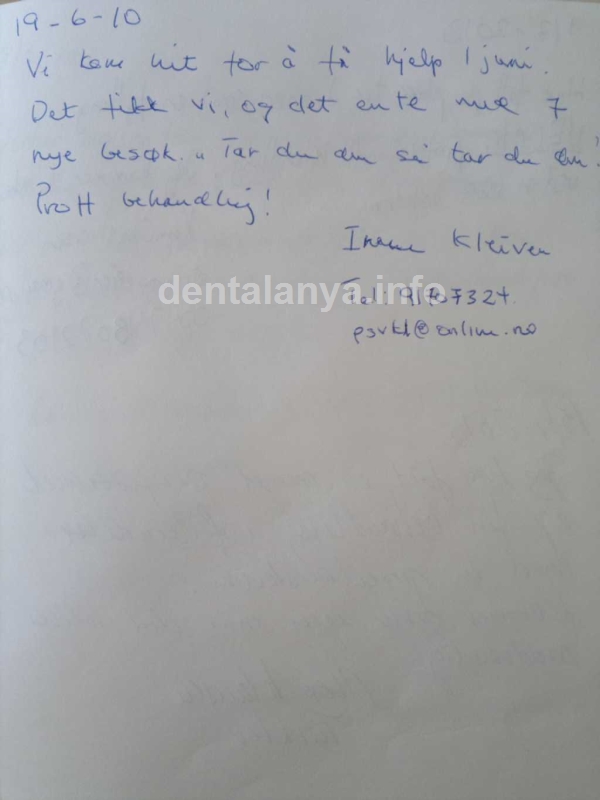 19-6-10
Vi kom hit for å få hjelp 1 juni.
Det fikk vi, og det endte med 7
nye besøk. "Tar du den så tar du den!"
Proff behandling!
Kleiven
dentalanya.info
Tel:
@online.no